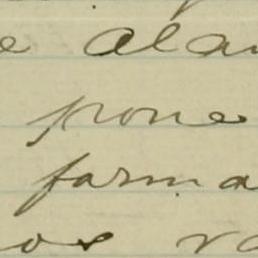 e alar
pone
forma
os va